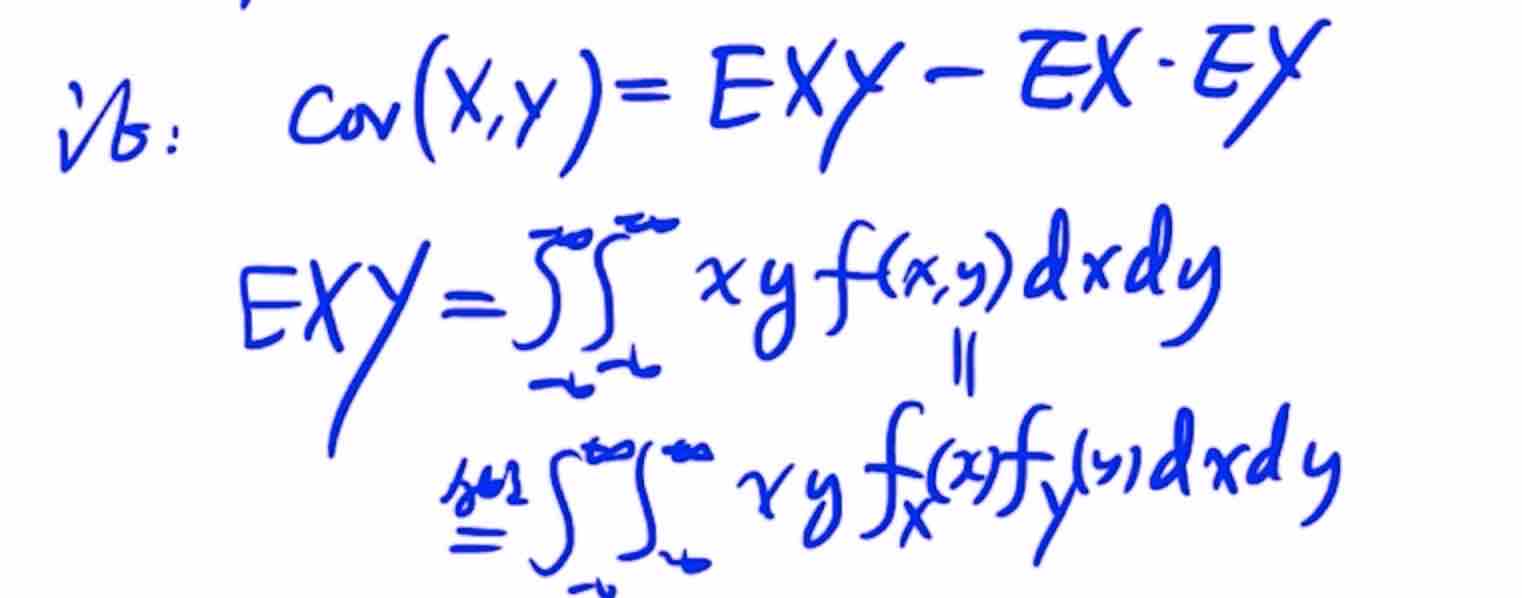 证: Cov(X,Y) = EXY - EX·EY
EXY = ∫_{-∞}^{+∞}∫_{-∞}^{+∞} xy f(x,y) dxdy
||
= ∫_{-∞}^{+∞}∫_{-∞}^{+∞} xy f_X(x) f_Y(y) dxdy